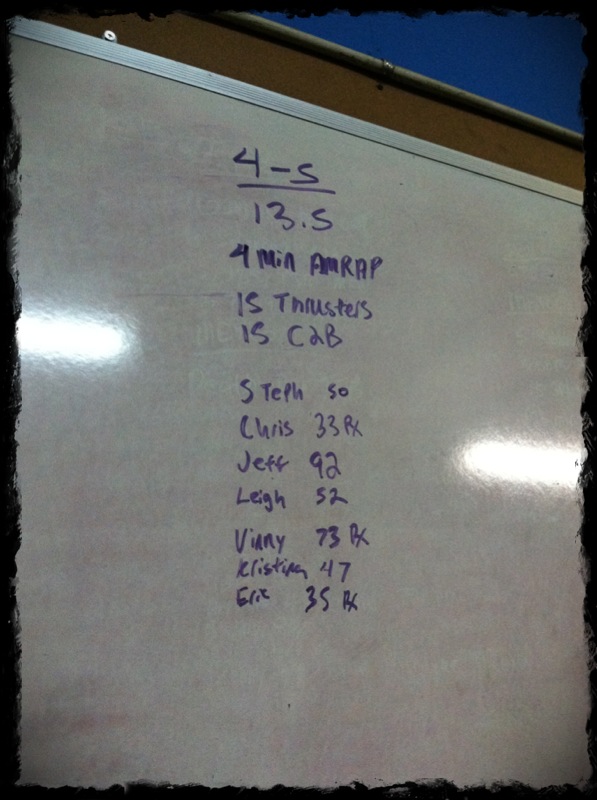 4-5
13.5
4 Min AMRAP
15 Thrusters
15 C2B
Steph 50
Chris 33 Rx
Jeff 92
Leigh 52
Vinny 73 Rx
Kristina 47
Eric 35 Rx